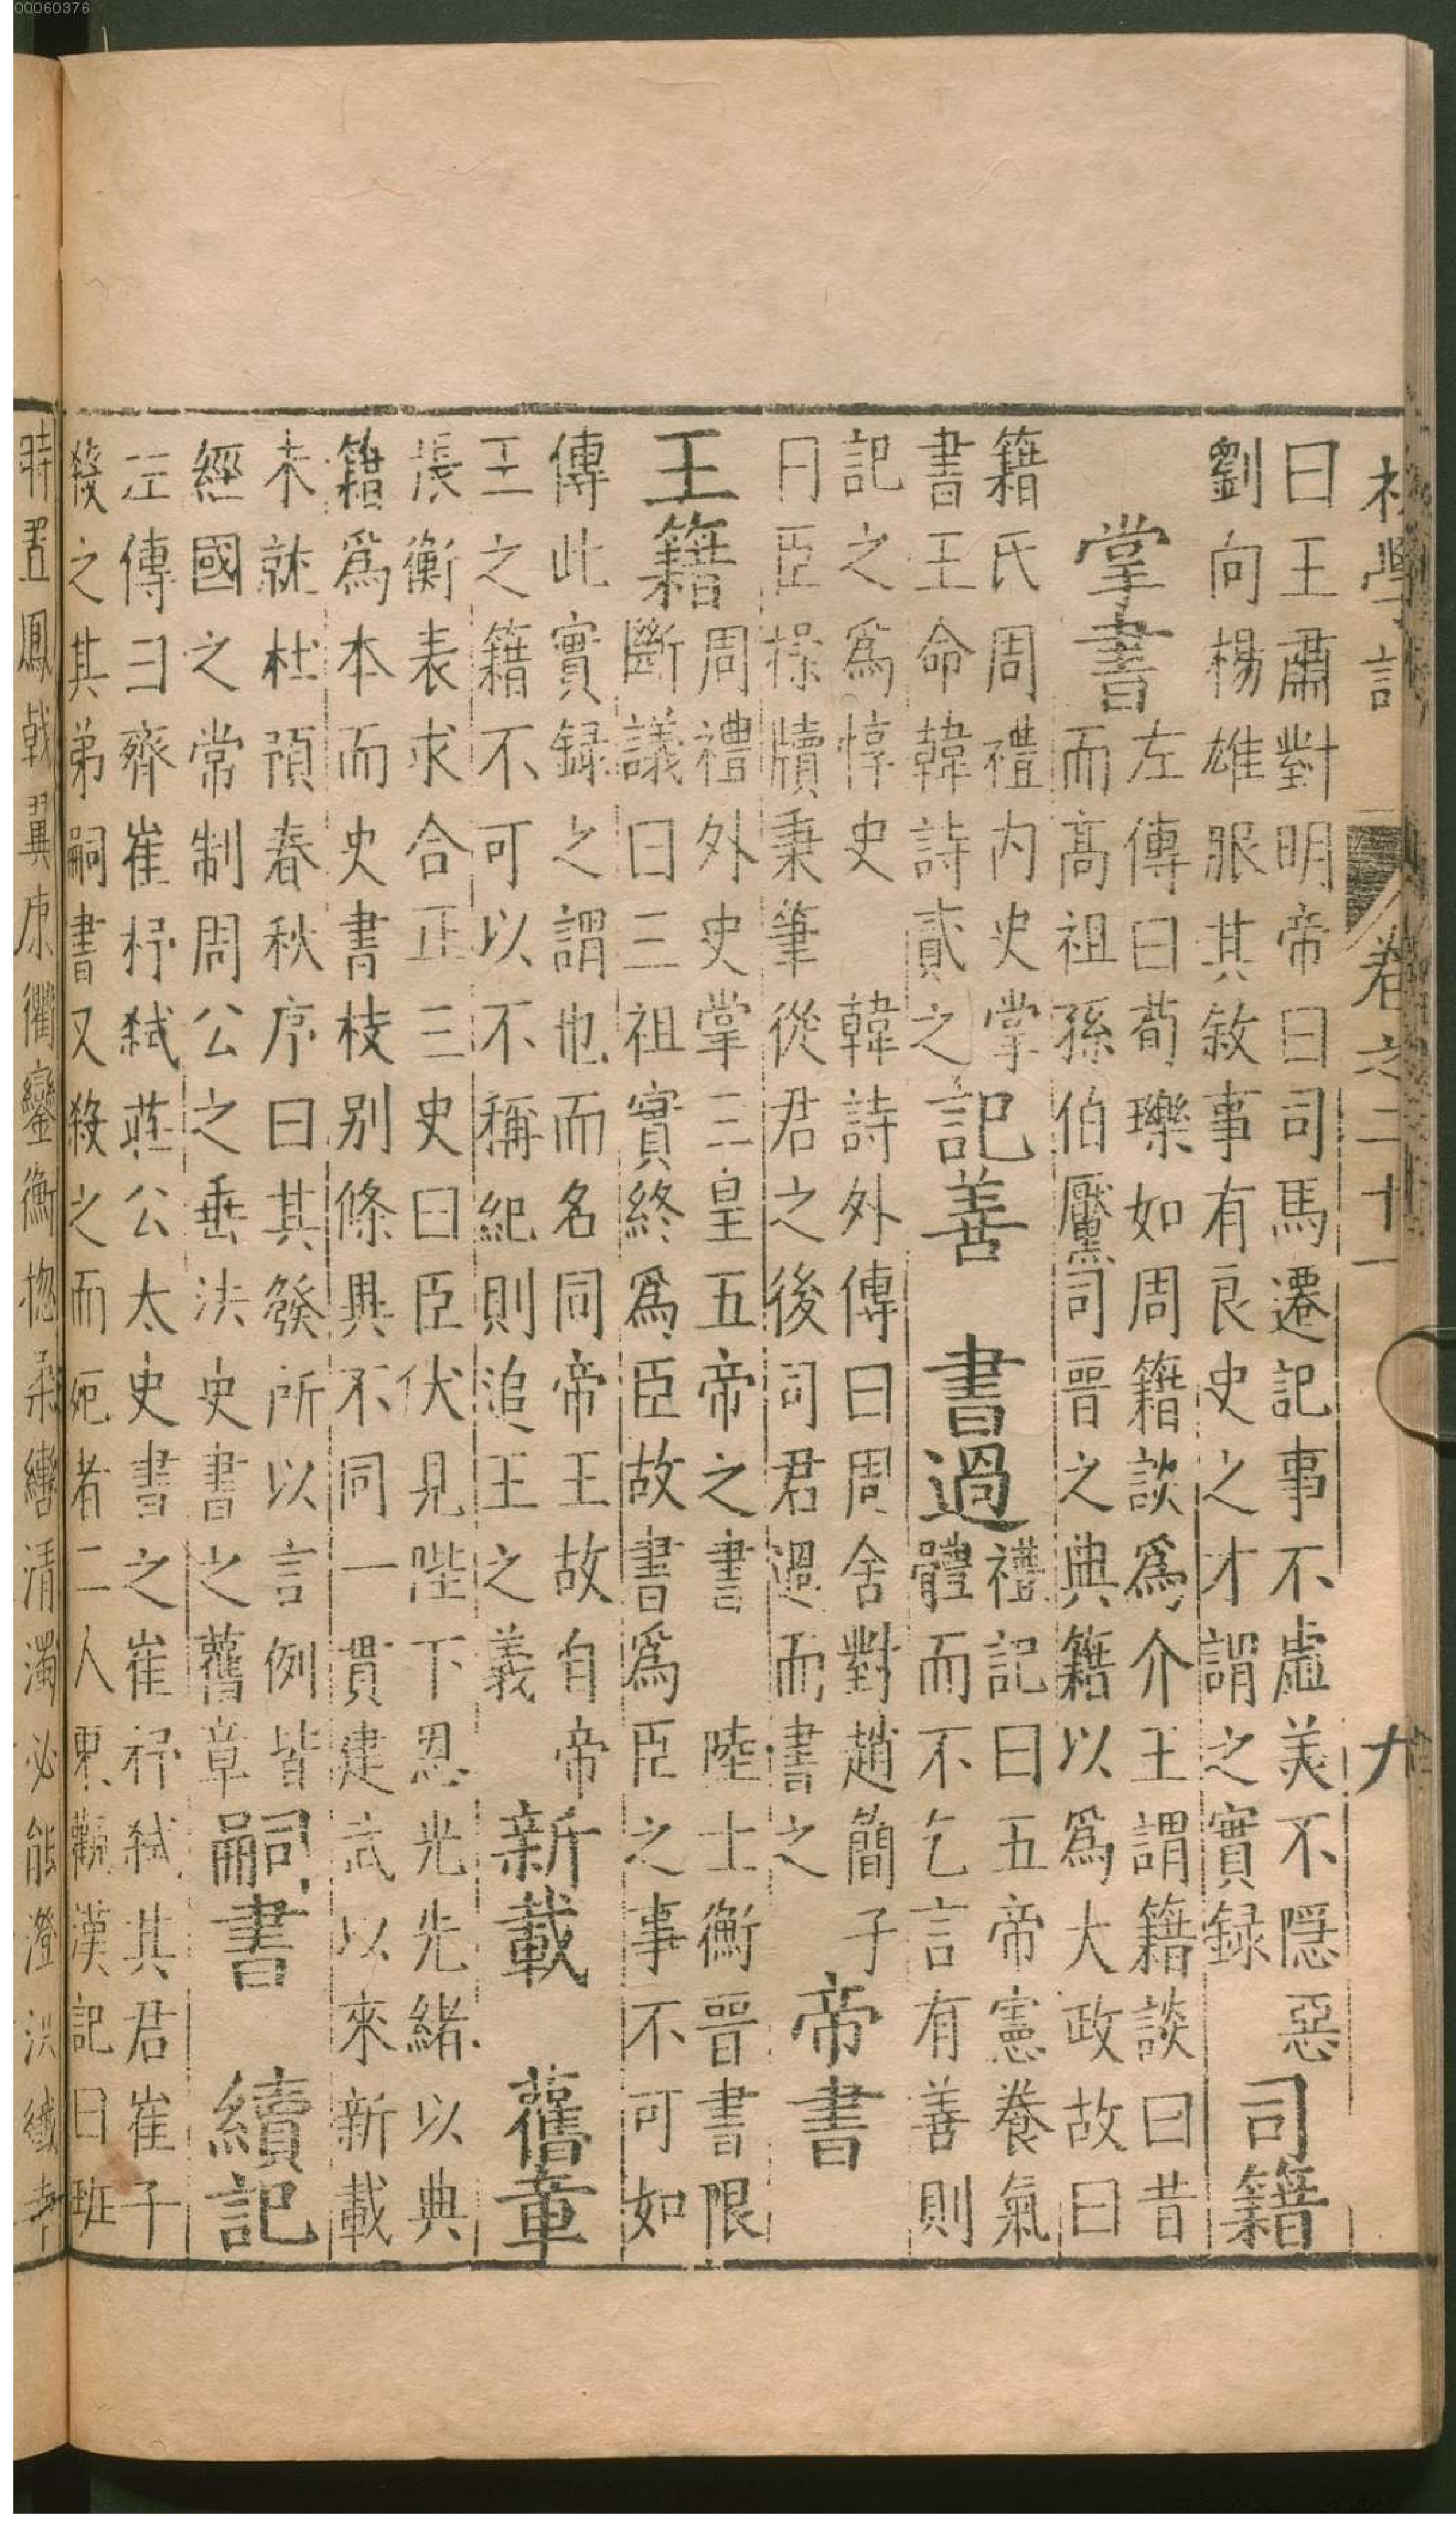 初學記 卷之二十一 九
曰王肅對明帝曰司馬遷記事不虛美不隱惡
劉向楊雄服其敘事有良史之才謂之實録
司籍
掌書
左傳曰荀躒如周籍談爲介王謂籍談曰昔
而高祖孫伯黶司晉之典籍以爲大政故曰
籍氏周禮内史掌
書王命韓詩貳之
記善 書過
禮記曰五帝憲養氣
體而不乞言有善則
記之爲惇史 韓詩外傳曰周舍對趙簡子
曰臣操牘秉筆從君之後司君過而書之
帝書
王籍
周禮外史掌三皇五帝之書 陸士衡晉書限
斷議曰三祖實終爲臣故書爲臣之事不可如
傳此實録之謂也而名同帝王故自帝
王之籍不可以不稱紀則追王之義
新載 舊章
張衡表求合正三史曰臣伏見陛下恩光先緒以典
籍爲本而史書枝别條異不同一貫建武以來新載
未就杜預春秋序曰其發所以言例皆
經國之常制周公之垂法史書之舊章
嗣書 續記
左傳曰齊崔杼弑莊公太史書之崔杼弑其君崔子
殺之其弟嗣書又殺之而死者二人東觀漢記曰班
時置鳳戟翼康衢鑾衡惣飛轡清濁必能澄洪纖幸
00060376